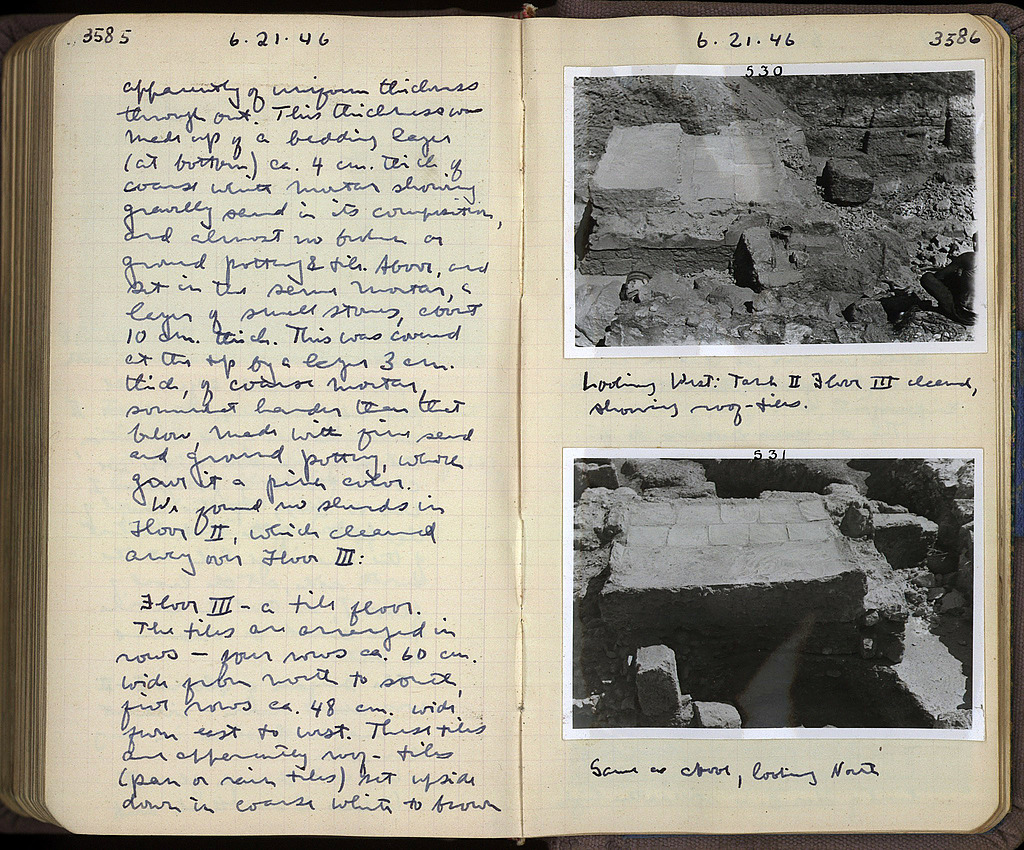 3585
6.21.46
apparently of uniform thickness
through out. This thickness was
made up of a bedding layer
(at bottom) ca. 4 cm. thick of
coarse white mortar showing
gravelly sand in its composition,
and almost no broken or
ground pottery & tile. Above, and
set in the same mortar, a
layer of small stones, about
10 cm. thick. This was covered
at the top by a layer 3 cm.
thick, of coarse mortar,
somewhat harder than that
below, made with fine sand
and ground pottery, which
gave it a pink color.
We found no sherds in
Floor II, which cleaned
away over Floor III:
Floor III - a tile floor.
The tiles are arranged in
rows - four rows ca. 60 cm.
wide from north to south,
five rows ca. 48 cm. wide
from east to west. These tiles
are apparently roof-tiles
(pan or rain tiles) set upside
down in coarse white to brown
6.21.46
3586
530
Looking West: Tank II Floor III cleaned,
showing roof-tiles.
531
Same as above, looking North